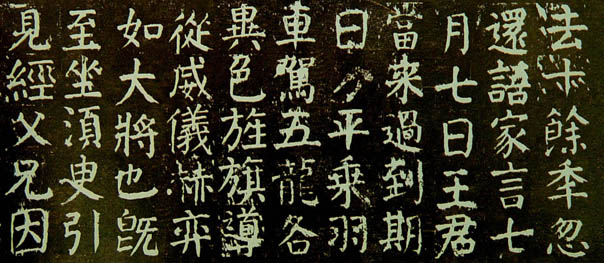 法十餘秊忽
還語家言七
月七日王君
當来過到期
日方平乗羽
車駕五龍各
異色旌旗導
從威儀赫弈
如大將也既
至坐須臾引
見經父兄因